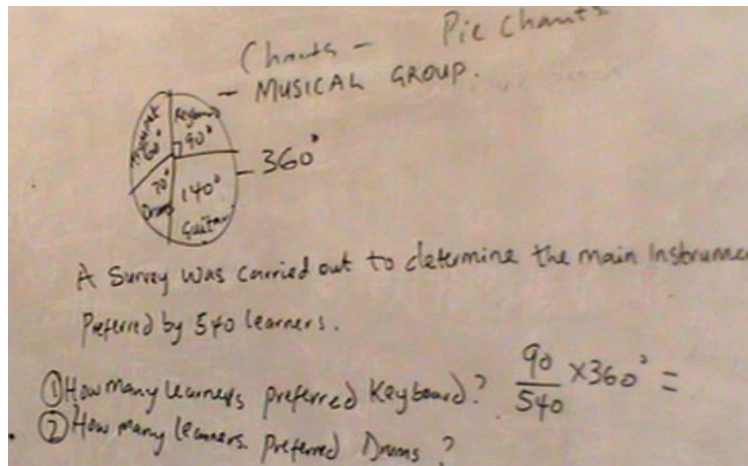 Charts - Pie Charts
- MUSICAL GROUP.
Keyboard
60°
90°
- 360°
70°
140°
Drums
Guitar
A Survey was carried out to determine the main Instrume
Preferred by 540 learners.
① How many learners preferred Keyboard? 90/540 ×360° =
② How many learners. Preferred Drums?